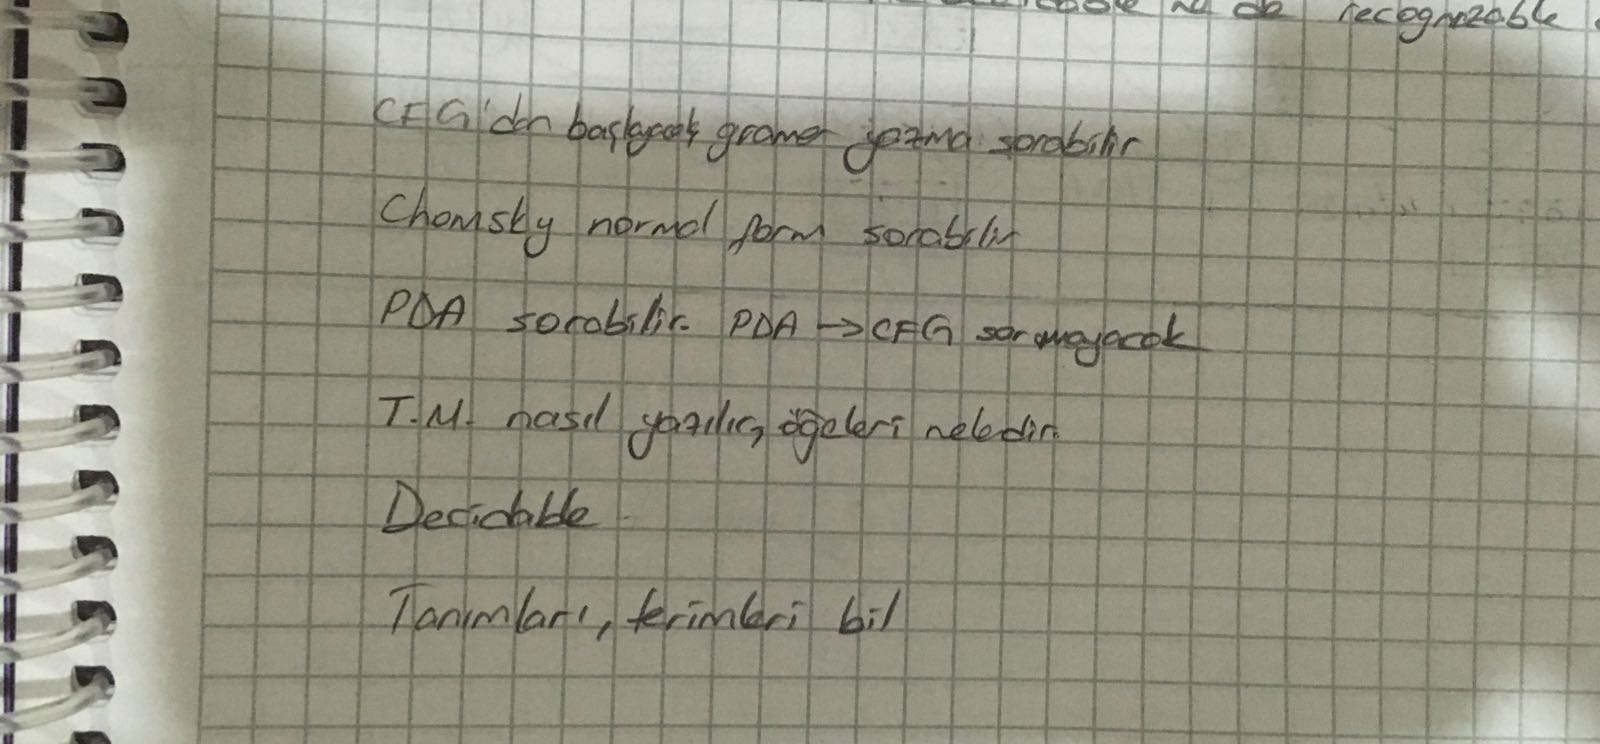 na da recognizable
CFG'den başlayacak gramer yazma sorabilir
Chomsky normal form sorabilir
PDA sorabilir. PDA → CFG sormayacak
T.M. nasıl yazılır, öğeleri nelerdir.
Decidable
Tanımları, terimleri bil